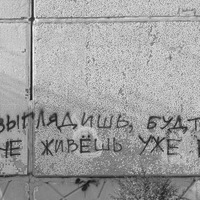 ВЫГЛЯДИШЬ, БУДТ
НЕ ЖИВЁШЬ УЖЕ